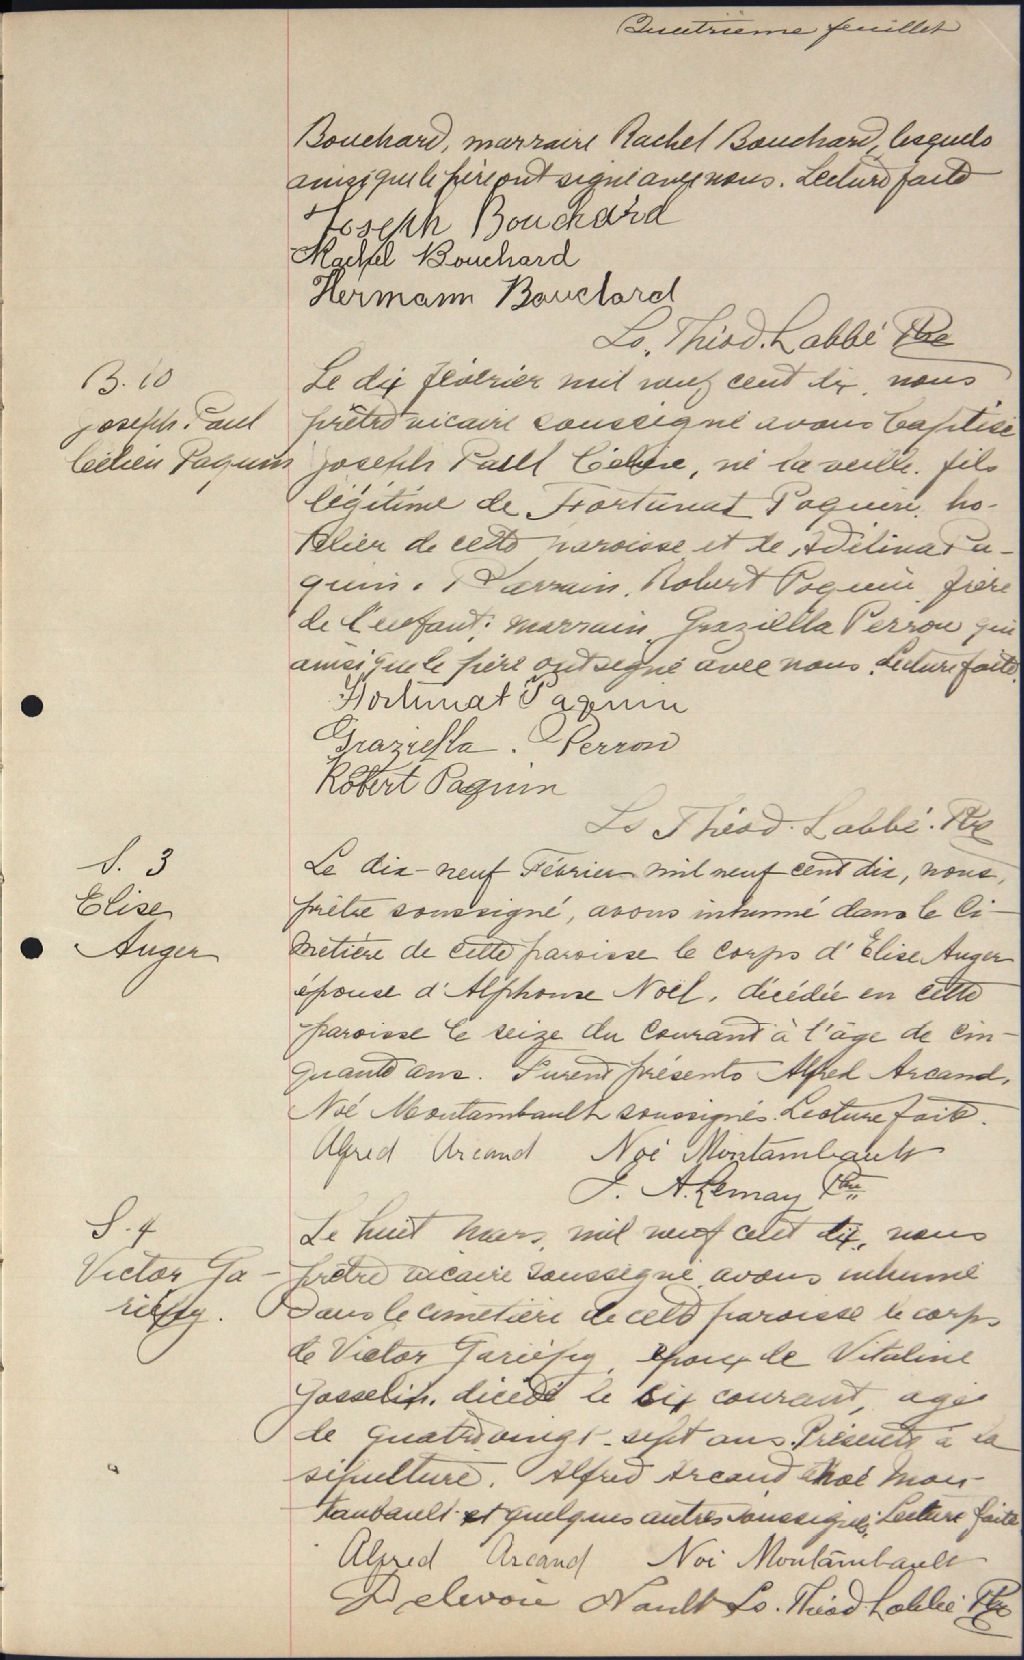 Quatrième feuillet
Bouchard, marraine Rachel Bouchard, lesquels
ainsi que le père ont signé avec nous. Lecture faite
Joseph Bouchard
Rachel Bouchard
Hermann Bouchard
Ls. Théod. Labbé Ptre
B. 10
Joseph. Paul
Célien Paquin
Le dix février mil neuf cent dix, nous
prêtre vicaire soussigné avons baptisé
Joseph Paul, né la veille, fils
légitime de Fortunat Paquin, ho-
telier de cette paroisse et de Adélina Pa-
quin. Parrain, Robert Paquin frère
de l'enfant; marraine Graziella Perron qui
ainsi que le père ont signé avec nous. Lecture faite.
Fortunat Paquin
Graziella. Perron
Robert Paquin
Ls Théod. Labbé. Ptre
S. 3
Elise
Auger
Le dix-neuf Février mil neuf cent dix, nous,
prêtre soussigné, avons inhumé dans le Ci-
metière de cette paroisse le corps d'Elise Auger
épouse d'Alphonse Noël, décédée en cette
paroisse le seize du courant à l'âge de cin-
quante ans. Furent présents Alfred Arcand,
Noé Montambault soussignés. Lecture faite.
Alfred Arcand Noé Montambault
J. A. Lemay Ptre
S. 4
Victor Ga-
riépy.
Le huit mars, mil neuf cent dix, nous
prêtre vicaire soussigné avons inhumé
dans le cimetière de cette paroisse le corps
de Victor Gariépy, époux de Vitaline
Gosselin, décédé le six courant, agé
de quatre vingt-sept ans. Présents à la
sépulture. Alfred Arcand Noé Mon-
tambault et quelques autres soussignés. Lecture faite
Alfred Arcand Noé Montambault
Delevoie Nault Ls. Théod. Labbé Ptre